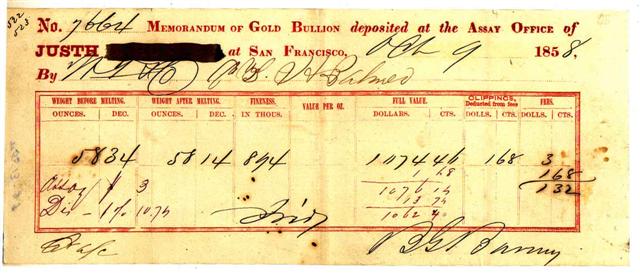 522
523
No. 7664 MEMORANDUM OF GOLD BULLION deposited at the ASSAY OFFICE OF
JUSTH at SAN FRANCISCO, Oct 9 1858.
By
WEIGHT BEFORE MELTING. WEIGHT AFTER MELTING. FINENESS. VALUE PER OZ. FULL VALUE. CLIPPINGS, Deducted from fees FEES.
OUNCES. DEC. OUNCES. DEC. IN THOUS. DOLLARS. CTS. DOLLS. CTS. DOLLS. CTS.
58 34 58 14 894 1074 46 1 68 3
1 68 1 68
1076 14 1 32
Assay 3 13 74
Dis - 1% 10.74 1062 40